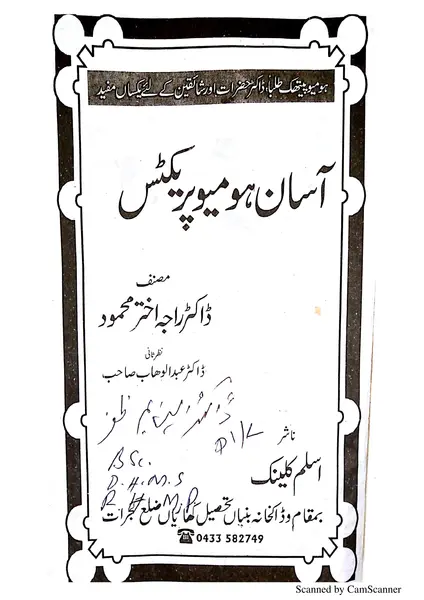 ہومیوپیتھک طلباء، ڈاکٹر حضرات اور شائقین کے لئے یکساں مفید
آسان ہومیو پریکٹس
مصنف
ڈاکٹر راجہ اختر محمود
نظر ثانی
ڈاکٹر عبدالوھاب صاحب
ڈاکٹر
ناشر
اسلم کلینک
BSc.
D.H.M.S
R.H.M.P
بمقام و ڈاکخانہ بنیاں تحصیل کھاریاں ضلع گجرات
☎ 0433 582749
Scanned by CamScanner